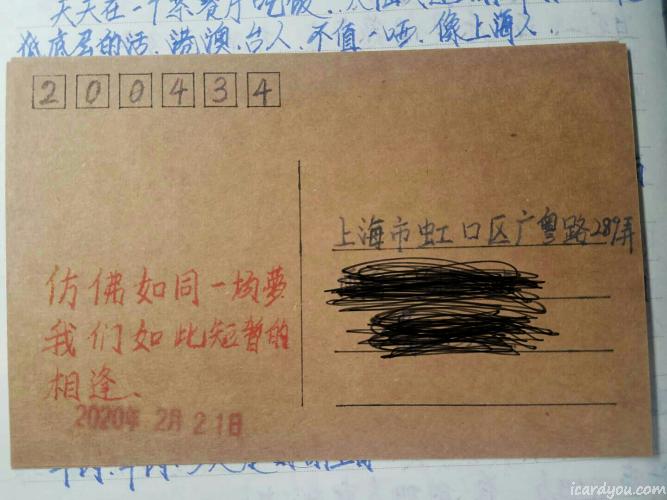 天天在一个茶餐厅吃饭
低底层的活、港、澳、台人、不值一哂、像上海人、
200434
上海市虹口区广粤路289弄
仿佛如同一场夢
我们如此短暂的
相逢、
2020年 2月 21日
icardyou.com